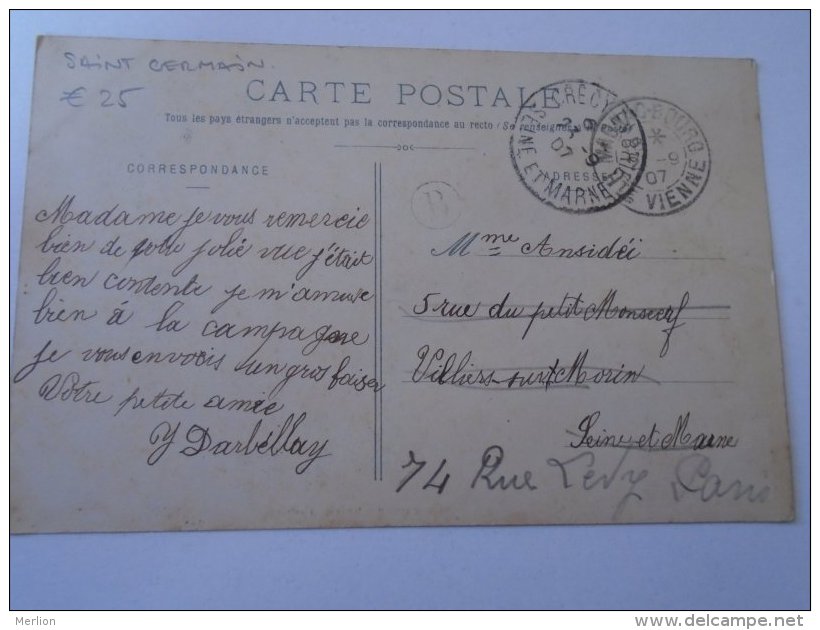 SAINT GERMAIN.
€ 25
CARTE POSTALE
Tous les pays étrangers n'acceptent pas la correspondance au recto (Se renseigner
CORRESPONDANCE
ADRESSE
CRÉCY
SEINE ET MARNE
07
BOURG
VIENNE
07
B
Madame je vous remercie
bien de votre jolie vue j'était
bien contente je m'amuse
bien à la campagne
je vous envois un gros baiser
Votre petite amie
Y Darbellay
Mme Ansidéi
5 rue du petit Moncerf
Villiers-sur-Morin
Seine et Marne
74 Rue Levy Paris
Merlion
www.delcampe.net